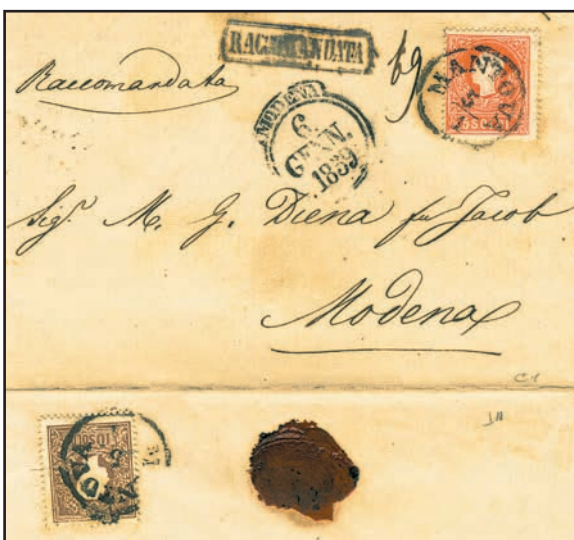 RACCOMANDATA
Raccomandata
69
MANTOVA
5
1
5 SOLDI
MODENA
6.
GENN.
1859
Sigr. M. G. Diena fu Jacob
Modena
C1
10 SOLDI
5